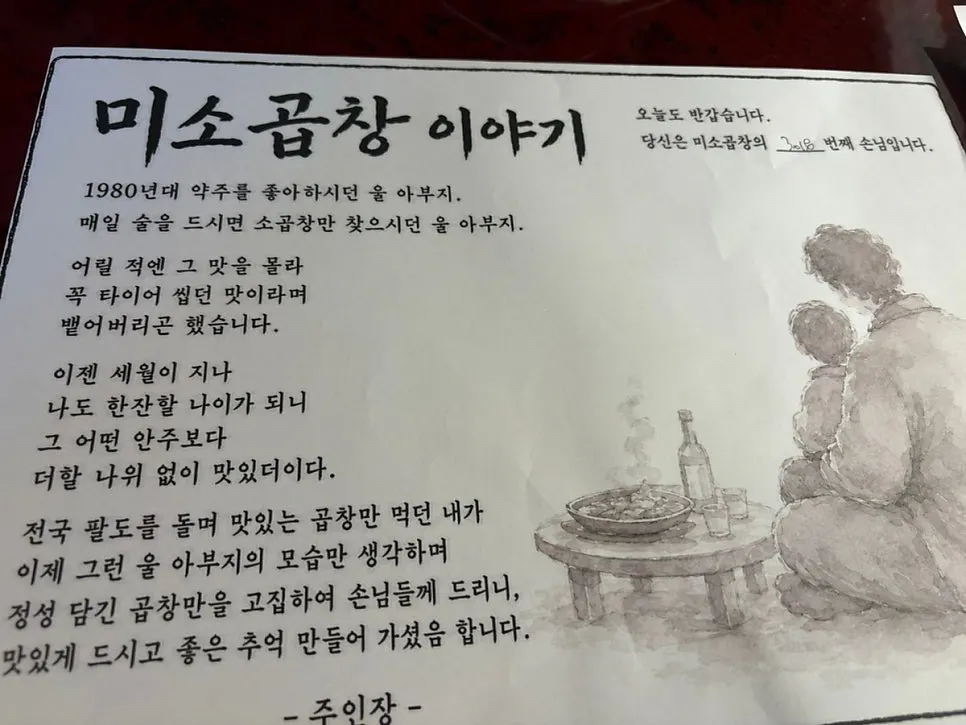 미소곱창 이야기
오늘도 반갑습니다.
당신은 미소곱창의 3018 번째 손님입니다.
1980년대 약주를 좋아하시던 울 아부지.
매일 술을 드시면 소곱창만 찾으시던 울 아부지.
어릴 적엔 그 맛을 몰라
꼭 타이어 씹던 맛이라며
뱉어버리곤 했습니다.
이젠 세월이 지나
나도 한잔할 나이가 되니
그 어떤 안주보다
더할 나위 없이 맛있더이다.
전국 팔도를 돌며 맛있는 곱창만 먹던 내가
이제 그런 울 아부지의 모습만 생각하며
정성 담긴 곱창만을 고집하여 손님들께 드리니,
맛있게 드시고 좋은 추억 만들어 가셨음 합니다.
- 주인장 -